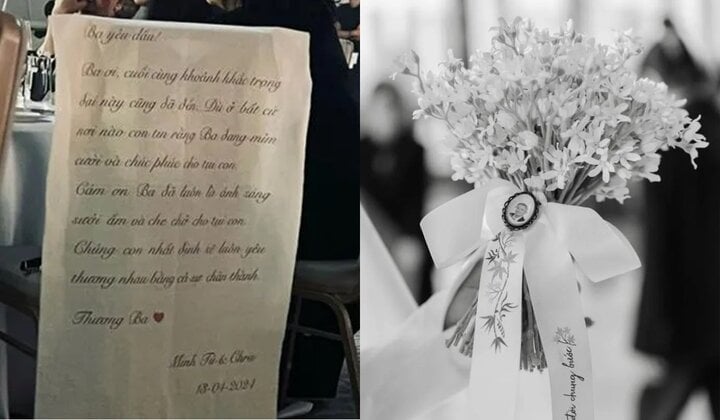 Ba yêu dấu!
Ba ơi, cuối cùng khoảnh khắc trọng
đại này cũng đã đến. Dù ở bất cứ
nơi nào con tin rằng Ba đang mỉm
cười và chúc phúc cho tụi con.
Cảm ơn Ba đã luôn là ánh sáng
sưởi ấm và che chở cho tụi con.
Chúng con nhất định sẽ luôn yêu
thương nhau bằng cả sự chân thành.
Thương Ba ❤
Minh Tú & Chris
13-04-2024
chung bước